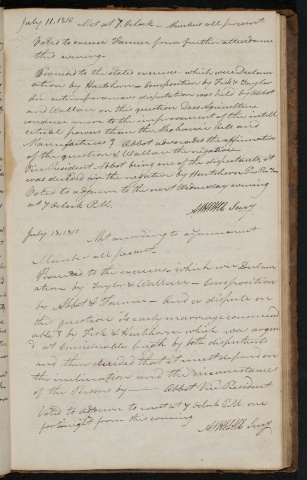 July 11. 1810 Met at 7 Oclock — Members all present
Voted to excuse Farmer from further attendance
this evening.
Proceed to the stated exercise which were Declam
ation by Hartshorn — Composition by Fisk & Taylor
An extemporanious disputation was held by Abbot
and Wallace on this question Does Agriculture
conduce more to the improvement of the intell
ectual powers than the Mechanic Arts and
Manufactures? Abbot advocates the affirmation
of the question & Wallace the negative.
Vice President Abbot being one of the disputants, it
was decided in the negative by Hartshorn Pres Pro Tem
Voted to adjourn to the next Wednesday evening
at 7 Oclock P.M.
Secry
July 18. 181
Met according to adjournment
Members all present
Proceeded to the exercises which were Declam
ation by Taylor & Wallace — Composition
by Abbot & Farmer — And a dispute on
the question Is early marriage commend
able? by Fisk & Hartshorn which was argue
d at considerable length by both disputants
and then decided that it must depend on
the inclination and the circumstance
of the Persons by — Abbot Vice President
Voted to adjourn to meet at 7 Oclock P.M. one
fortnight from this evening
Secry